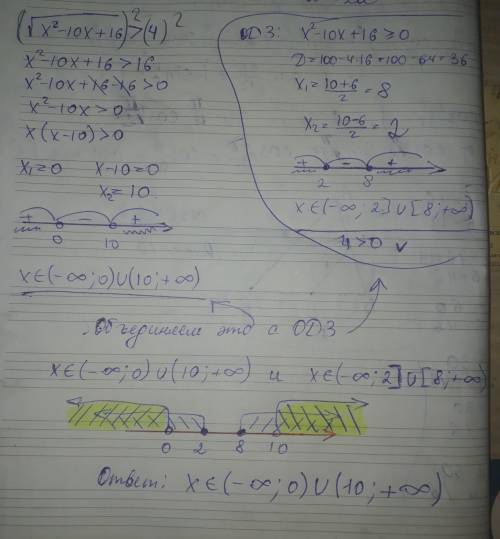 (√x²-10x+16)²>(4)²
x²-10x+16>16
x²-10x+16-16>0
x²-10x>0
x(x-10)>0
x₁=0 x-10=0
x₂=10
+ - +
0 10
x∈(-∞;0)∪(10;+∞)
ОДЗ: x²-10x+16≥0
D=100-4·16=100-64=36
x₁=10+6/2=8
x₂=10-6/2=2
+ - +
2 8
x∈(-∞;2]∪[8;+∞)
4>0 v
Объединяем это с ОДЗ
x∈(-∞;0)∪(10;+∞) и x∈(-∞;2]∪[8;+∞)
0 2 8 10
Ответ: x∈(-∞;0)∪(10;+∞)